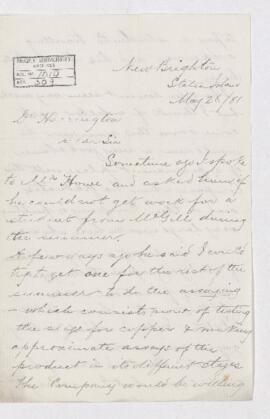 McGILL UNIVERSITY
ARCHIVES
ACC. NO. 1010
REF. 309
New Brighton
Staten Island
May 28/81
Dr Harrington
Dear Sir
Sometime ago I spoke
to Mr Howe and asked him if
he could not get work for a
student from McGill during
the summer.
A few days ago he said I could
get one for the rest of the
summer to do the assaying
- which consists most of testing
the slags for copper & making
approximate assays of the
product in its different stages
The Company would be willing